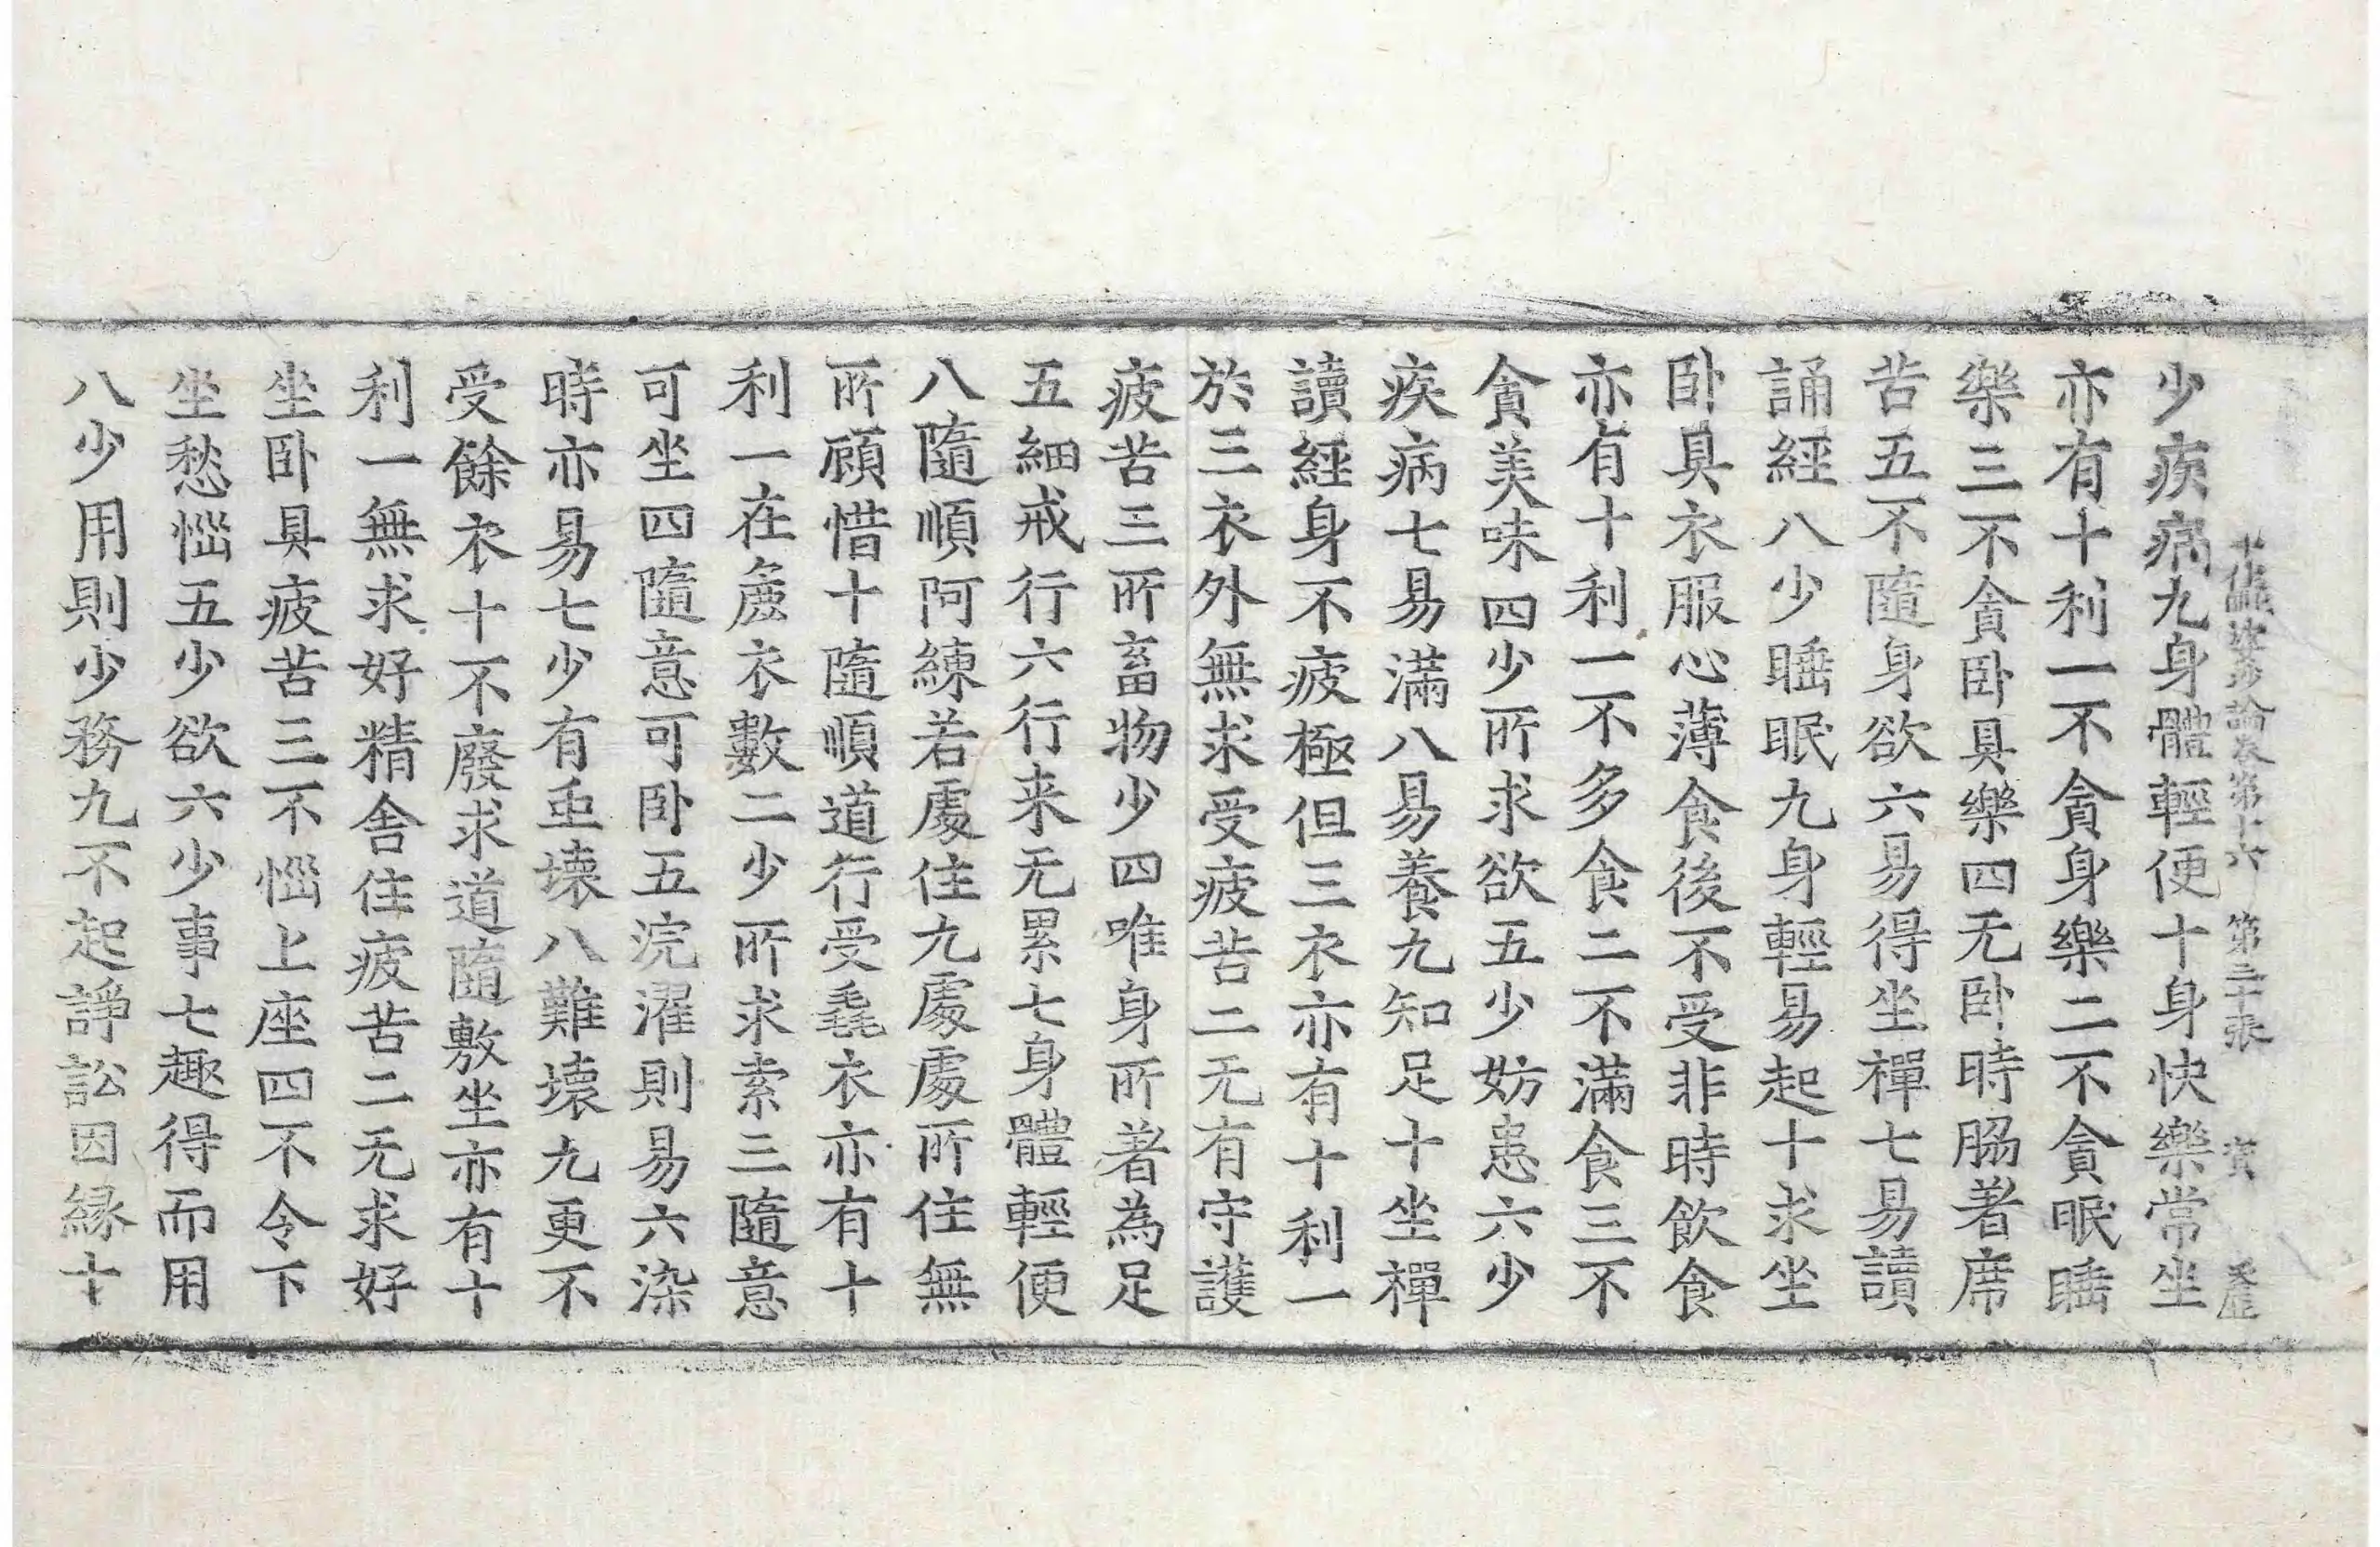 十住毗婆沙論卷第十六 第三十張 賓
少疾病九身體輕便十身快樂常坐
亦有十利一不貪身樂二不貪眠睡
樂三不貪卧具樂四无卧時脇著席
苦五不隨身欲六易得坐禪七易讀
誦經八少睡眠九身輕易起十求坐
卧具衣服心薄食後不受非時飲食
亦有十利一不多食二不滿食三不
貪美味四少所求欲五少妨患六少
疾病七易滿八易養九知足十坐禪
讀經身不疲極但三衣亦有十利一
於三衣外無求受疲苦二无有守護
疲苦三所畜物少四唯身所著為足
五細戒行六行来无累七身體輕便
八隨順阿練若處住九處處所住無
所顧惜十隨順道行受毳衣亦有十
利一在麁衣數二少所求索三隨意
可坐四隨意可卧五浣濯則易六染
時亦易七少有䖝壞八難壞九更不
受餘衣十不廢求道隨敷坐亦有十
利一無求好精舍住疲苦二无求好
坐卧具疲苦三不惱上座四不令下
坐愁惱五少欲六少事七趣得而用
八少用則少務九不起諍訟因縁十